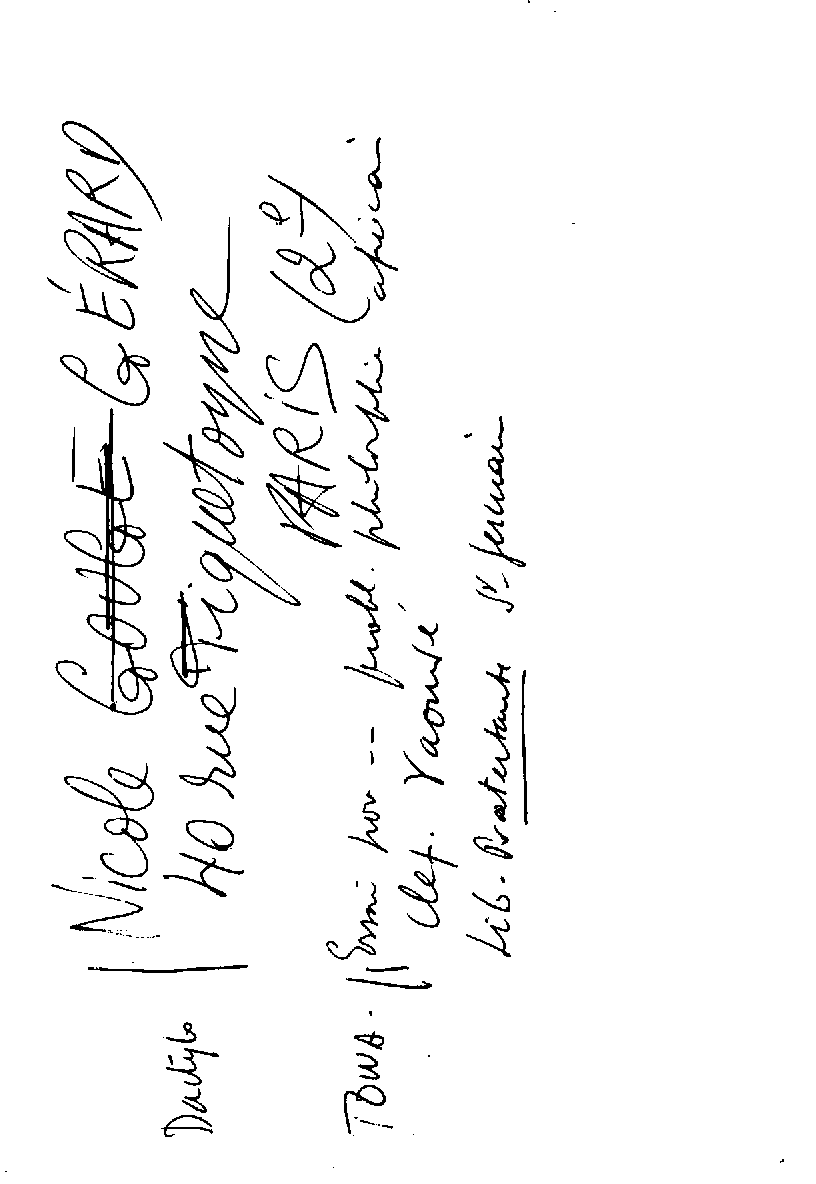 Dactylo
Nicole GÉRARD
40 rue Tiquetonne
PARIS (2e)
TOWA. Essai sur -- probl. philosophie africai
Clef. Yaoundé
Lib. Protestante St germain